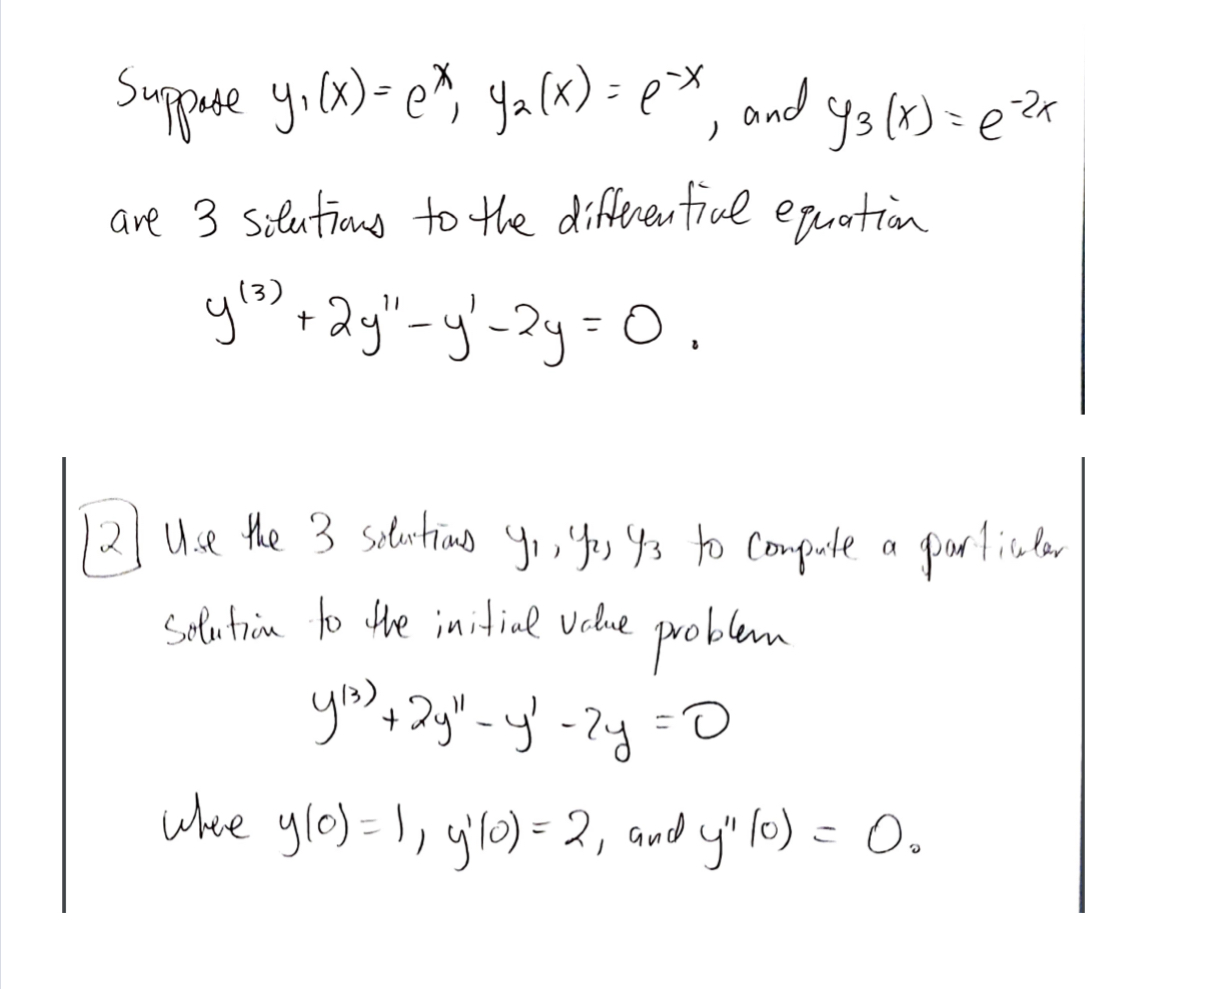 Suppose y₁(x) = eˣ, y₂(x) = e⁻ˣ, and y₃(x) = e⁻²ˣ
are 3 solutions to the differential equation
y⁽³⁾ + 2y'' - y' - 2y = 0.
2 Use the 3 solutions y₁, y₂, y₃ to compute a particular
solution to the initial value problem
y⁽³⁾ + 2y'' - y' - 2y = 0
where y(0) = 1, y'(0) = 2, and y''(0) = 0.